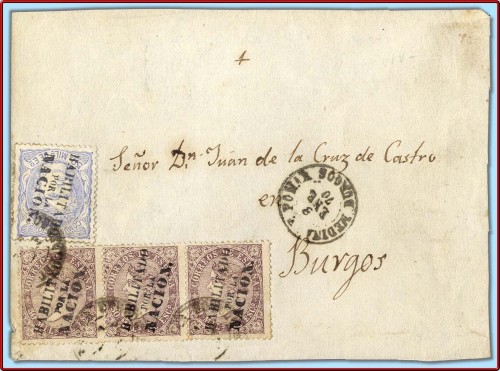 4
Señor Dn. Juan de la Cruz de Castro
en
Burgos
HABILITADO
POR LA
NACION.
HABILITADO
POR LA
NACION.
HABILITADO
POR LA
NACION.
HABILITADO
POR LA
NACION.
BURGOS
ENE
70